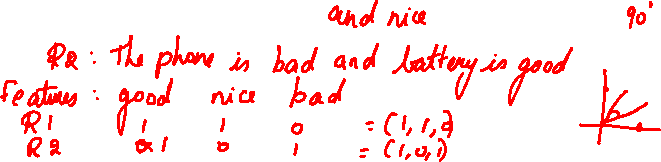 and nice 90°
R2 : The phone is bad and battery is good
Features : good nice bad
R1 1 1 0 = (1, 1, 0)
R2 1 0 1 = (1, 0, 1)